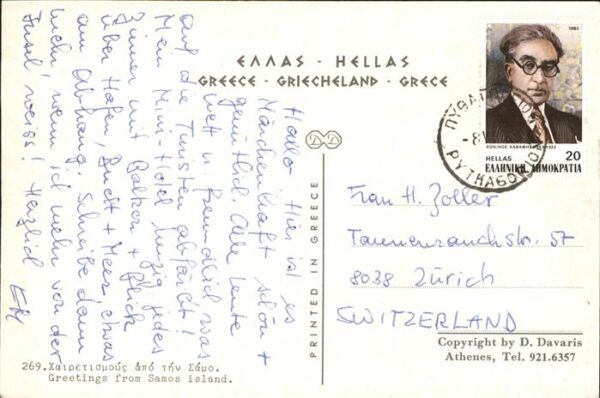 ΕΛΛΑΣ - HELLAS
GREECE - GRIECHELAND - GRECE
Hallo Hier ist es
Märchenhaft schön +
gemütlich. Alle Leute
nett u. freundlich was
auf die Touristen abfärbt!
Mein Mini-Hotel winzig jedes
Zimmer mit Balkon + Blick
über Hafen, Bucht + Meer, etwas
am Abhang. Schreibe dann
mehr, wenn ich mehr von der
Insel weiss! Herzlich
269.Χαιρετισμούς ἀπό τήν Σάμο.
Greetings from Samos island.
PRINTED IN GREECE
1983
ΚΩΝ/ΝΟΣ ΚΑΒΑΦΗΣ
HELLAS 20
ΕΛΛΗΝΙΚΗ ΔΗΜΟΚΡΑΤΙΑ
Frau H. Zoller
57
8038 Zürich
SWITZERLAND
Copyright by D. Davaris
Athenes, Tel. 921.6357